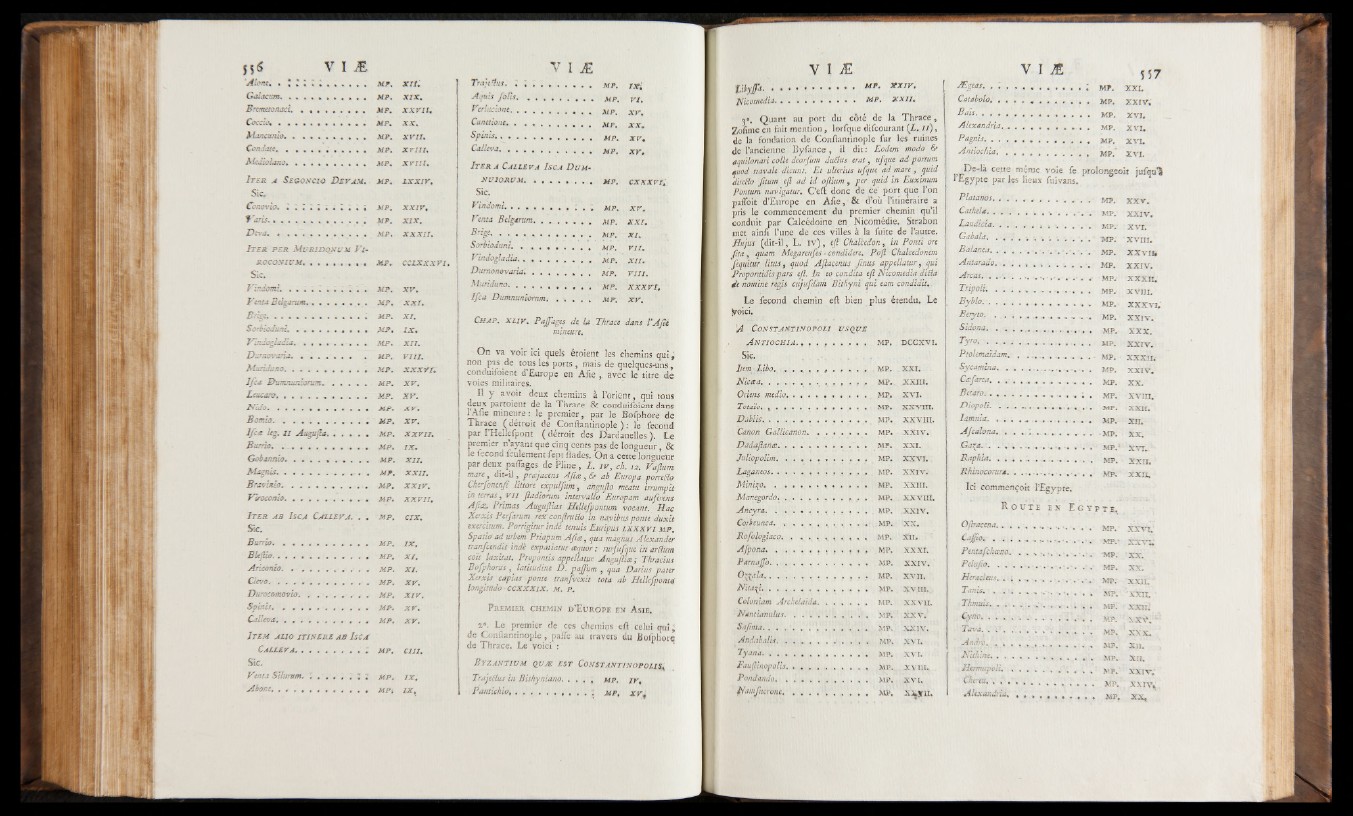 556 VIÆ
Alone. . . . . . . . . . MP. XII.
Galacum. . . . . . . . . . MP. XIX.
Bremetonaci. . . . . . . . . . MP. XXVII.
Coccio. . . . . . . . . . MP. XX.
Mancunio. . . . . . . . . . MP. XVII.
Condate. . . . . . . . . . MP. XVIII.
Mediolano. . . . . . . . . . MP. XVIII.
ITER A SEGONCIO DEVAM. MP. LXXIV.
Sic.
Conovio. . . . . . . . . . MP. XXIV.
Varis. . . . . . . . . . MP. XIX.
Deva. . . . . . . . . . MP. XXXII.
ITER PER MURIDONUM VI-
ROCONIUM. . . . . . . . MP. CCLXXXVI.
Sic.
Vindomi. . . . . . . . . . MP. XV.
Venta Belgarum. . . . . . . . MP. XXI.
Brige. . . . . . . . . . MP. XI.
Sorbioduni. . . . . . . . . . MP. IX.
Vindogladia. . . . . . . . . . MP. XII.
Durnovaria. . . . . . . . . . MP. VIII.
Muriduno. . . . . . . . . . MP. XXXVI.
Isca Dumnuniorum. . . . . . MP. XV.
Leucaro. . . . . . . . . . MP. XV.
Nido. . . . . . . . . . MP. XV.
Bomio. . . . . . . . . . MP. XV.
Iscæ leg. II Augusta. . . . . . MP. XXVII.
Burrio. . . . . . . . . . MP. IX.
Gobannio. . . . . . . . . . MP. XII.
Magnis. . . . . . . . . . MP. XXII.
Bravinio. . . . . . . . . . MP. XXIV.
Viroconio. . . . . . . . . . MP. XXVII.
ITER AB ISCA CALLEVA. . . MP. CIX.
Sic.
Burrio. . . . . . . . . . MP. IX.
Blestio. . . . . . . . . . MP. XI.
Ariconio. . . . . . . . . . MP. XI.
Clevo. . . . . . . . . . MP. XV.
Durocornovio. . . . . . . . . MP. XIV.
Spinis. . . . . . . . . . MP. XV.
Calleva. . . . . . . . . . MP. XV.
ITEM ALIO ITINERE AB ISCA
CALLEVA. . . . . . . . . . MP. CIII.
Sic.
Venta Silurum. . . . . . . . MP. IX.
Abone. . . . . . . . . . MP. IX.
VIÆ
Trajectus. . . . . . . . . . MP. IX.
Aquis solis. . . . . . . . . . MP. VI.
Verlucione. . . . . . . . . . MP. XV.
Cunetione. . . . . . . . . . MP. XX.
Spinis. . . . . . . . . . MP. XV.
Calleva. . . . . . . . . . MP. XV.
ITER A CALLEVA ISCA DUM-
NUIORUM. . . . . . . . MP. CXXXVI.
Sic.
Vindomi. . . . . . . . . . MP. XV.
Venta Belgarum. . . . . . . . MP. XXI.
Brige. . . . . . . . . . MP. XI.
Sorbioduni. . . . . . . . . . MP. VII.
Vindogladia. . . . . . . . . . MP. XII.
Durnonovaria. . . . . . . . . MP. VIII.
Muriduno. . . . . . . . . . MP. XXXVI.
Isca Dumnuniorum. . . . . . MP. XV.
CHAP. XLIV. Passages de la Thrace dans l'Asie
mineure.
On va voir ici quels étoient les chemins qui,
non pas de tous les ports, mais de quelques-uns,
conduisoient d'Europe en Asie, avec le titre de
voies militaires.
Il y avoit deux chemins à l'orient, qui tous
deux partoient de la Thrace & conduisoient dans
l'Asie mineure: le premier, par le Bosphore de
Thrace (détroit de Constantinople): le second
par l'Hellespont (détroit des Dardanelles). Le
premier n'ayant que cinq cents pas de longueur, &
le second seulement sept stades. On a cette longueur
par deux passages de Pline, L. IV, ch. 12. Vastum
mare, dit-il, præjacens Asiæ, & ab Europa porrecto
Chersonensi littore expulsum, angusto meatu irrumpit
in terras, VII stadiorum intervallo Europam auferens
Asiæ. Primas Augustias Hellespontum vocant. Hac
Xerxis Persarum rex constrato in navibus ponte duxit
exercitum. Porrigitur indè tenuis Euripus LXXXVI MP.
Spatio ad urbem Priapum Asiæ, qua magnus Alexander
transcendit indè expatiatur æquor: rursusque in arctum
coit laxitas. Propontis appellatur Angustiæ; Thracius
Bosphorus, latitudine D. passum, qua Darius pater
Xerxis copias ponte transvexit tota ab Hellesponto
longitudo CCXXXIX. M. P.
PREMIER CHEMIN D'EUROPE EN ASIE.
2°. Le premier de ces chemins est celui qui,
de Constantinople, passe au travers du Bosphore
de Thrace. Le voici:
BYZANTIUM QUÆ EST CONSTANTINOPOLIS.
Trajectus in Bithyniano. . . . . MP. IV.
Pantichio. . . . . . . . . . MP. XV.
VIÆ
Libyssa. . . . . . . . . . MP. XXIV.
Nicomedia. . . . . . . . . . MP. XXII.
3°. Quant au port du côté de la Thrace,
Zosime en fait mention, lorsque discourant (L. II),
de la fondation de Constantinople sur les ruines
de l'ancienne Bysance, il dit: Eodem modo &
aquilonari colle deorsum ductus erat, usque ad portum
quod navale dicunt. Et ulterius usque ad mare, quid
directo situm est ad id ostium, per quid in Euxinum
Pontum navigatur. C'est donc de ce port que l'on
passoit d'Europe en Asie, & d'où l'itinéraire a
pris le commencement du premier chemin qu'il
conduit par Calcédoine en Nicomédie. Strabon
met ainsi l'une de ces villes à la suite de l'autre.
Hujus (dit-il, L. IV), est Chalcedon, in Ponti ore
sita, quam Megarenses condiders. Post Chalcedonem
sequitur litus, quod Astacenus sinus appellatur, qui
Propontidis pars est. In eo condita est Nicomedia dicta
de nomine regis cujusdam Bithyni qui eam condidit.
Le second chemin est bien plus étendu. Le
voici.
A CONSTANTINOPOLI USQUE
ANTIOCHIA. . . . . . . . . MP. DCCXVI.
Sic.
Item Libo. . . . . . . . . . MP. XXI.
Nicæa. . . . . . . . . . MP. XXIII.
Oriens medio. . . . . . . . . . MP. XVI.
Totaio. . . . . . . . . . MP. XXVIII.
Dablis. . . . . . . . . . MP. XXVIII.
Cœnon Gallicanon. . . . . . . . MP. XXIV.
Dadastana. . . . . . . . . . MP. XXI.
Joliopolim. . . . . . . . . . MP. XXVI.
Laganeos. . . . . . . . . . MP. XXIV.
Minizo. . . . . . . . . . MP. XXIII.
Manegordo. . . . . . . . . . MP. XXVIII.
Ancyra. . . . . . . . . . MP. XXIV.
Corbeunca. . . . . . . . . . MP. XX.
Rosologiaco. . . . . . . . . . MP. XII.
Aspona. . . . . . . . . . MP. XXXI.
Parnasso. . . . . . . . . . MP. XXIV.
Ozzala. . . . . . . . . . MP. XVII.
Nitazi. . . . . . . . . . MP. XVIII.
Coloniam Archelaida. . . . . . . MP. XXVII.
Nantianulus. . . . . . . . . . MP. XXV.
Sasima. . . . . . . . . . MP. XXIV.
Andabalis. . . . . . . . . . MP. XVI.
Tyana. . . . . . . . . . MP. XVI.
Faustinopolis. . . . . . . . . . MP. XVIII.
Pondando. . . . . . . . . . MP. XVI.
Namsucrone. . . . . . . . . . MP. XXVII.
VIÆ 557
Ægeas. . . . . . . . . . MP. XXI.
Catabolo. . . . . . . . . . MP. XXIV.
Bais. . . . . . . . . . MP. XVI.
Alexandria. . . . . . . . . . MP. XVI.
Pagris. . . . . . . . . . MP. XVI.
Antiochia. . . . . . . . . . MP. XVI.
De-là cette même voie se prolongeoit jusqu'à
l'Egypte par les lieux suivans.
Platanos. . . . . . . . . . MP. XXV.
Cathela. . . . . . . . . . MP. XXIV.
Laudicia. . . . . . . . . . MP. XVI.
Gabala. . . . . . . . . . MP. XVIII.
Balanea. . . . . . . . . . MP. XXVII.
Antarado. . . . . . . . . . MP. XXIV.
Arcas. . . . . . . . . . MP. XXXII.
Tripoli. . . . . . . . . . MP. XVIII.
Byblo. . . . . . . . . . MP. XXXVI.
Beryto. . . . . . . . . . MP. XXIV.
Sidona. . . . . . . . . . MP. XXX.
Tyro. . . . . . . . . . MP. XXIV.
Ptolemaïdam. . . . . . . . . . MP. XXXII.
Sycamina. . . . . . . . . . MP. XXIV.
Cæsarea. . . . . . . . . . MP. XX.
Betaro. . . . . . . . . . MP. XVIII.
Diospoli. . . . . . . . . . MP. XXII.
Iamnia. . . . . . . . . . MP. XII.
Ascalona. . . . . . . . . . MP. XX.
Gaza. . . . . . . . . . MP. XVI.
Raphia. . . . . . . . . . MP. XXII.
Rhinocorura. . . . . . . . . . MP. XXII.
Ici commençoit l'Egypte.
ROUTE EN EGYPTE.
Ostracena. . . . . . . . . . MP. XXVI.
Cassio. . . . . . . . . . MP. XXVI.
Pentaschæno. . . . . . . . . . MP. XX.
Pelusio. . . . . . . . . . MP. XX.
Heracleus. . . . . . . . . . MP. XXII.
Tanis. . . . . . . . . . MP. XXII.
Thmuis. . . . . . . . . . MP. XXII.
Cyno. . . . . . . . . . MP. XXV.
Tava. . . . . . . . . . MP. XXX.
Andro. . . . . . . . . . MP. XII.
Nithine. . . . . . . . . . MP. XII.
Hermupoli. . . . . . . . . . MP. XXIV.
Chereu. . . . . . . . . . MP. XXIV.
Alexandria. . . . . . . . . . MP. XX.